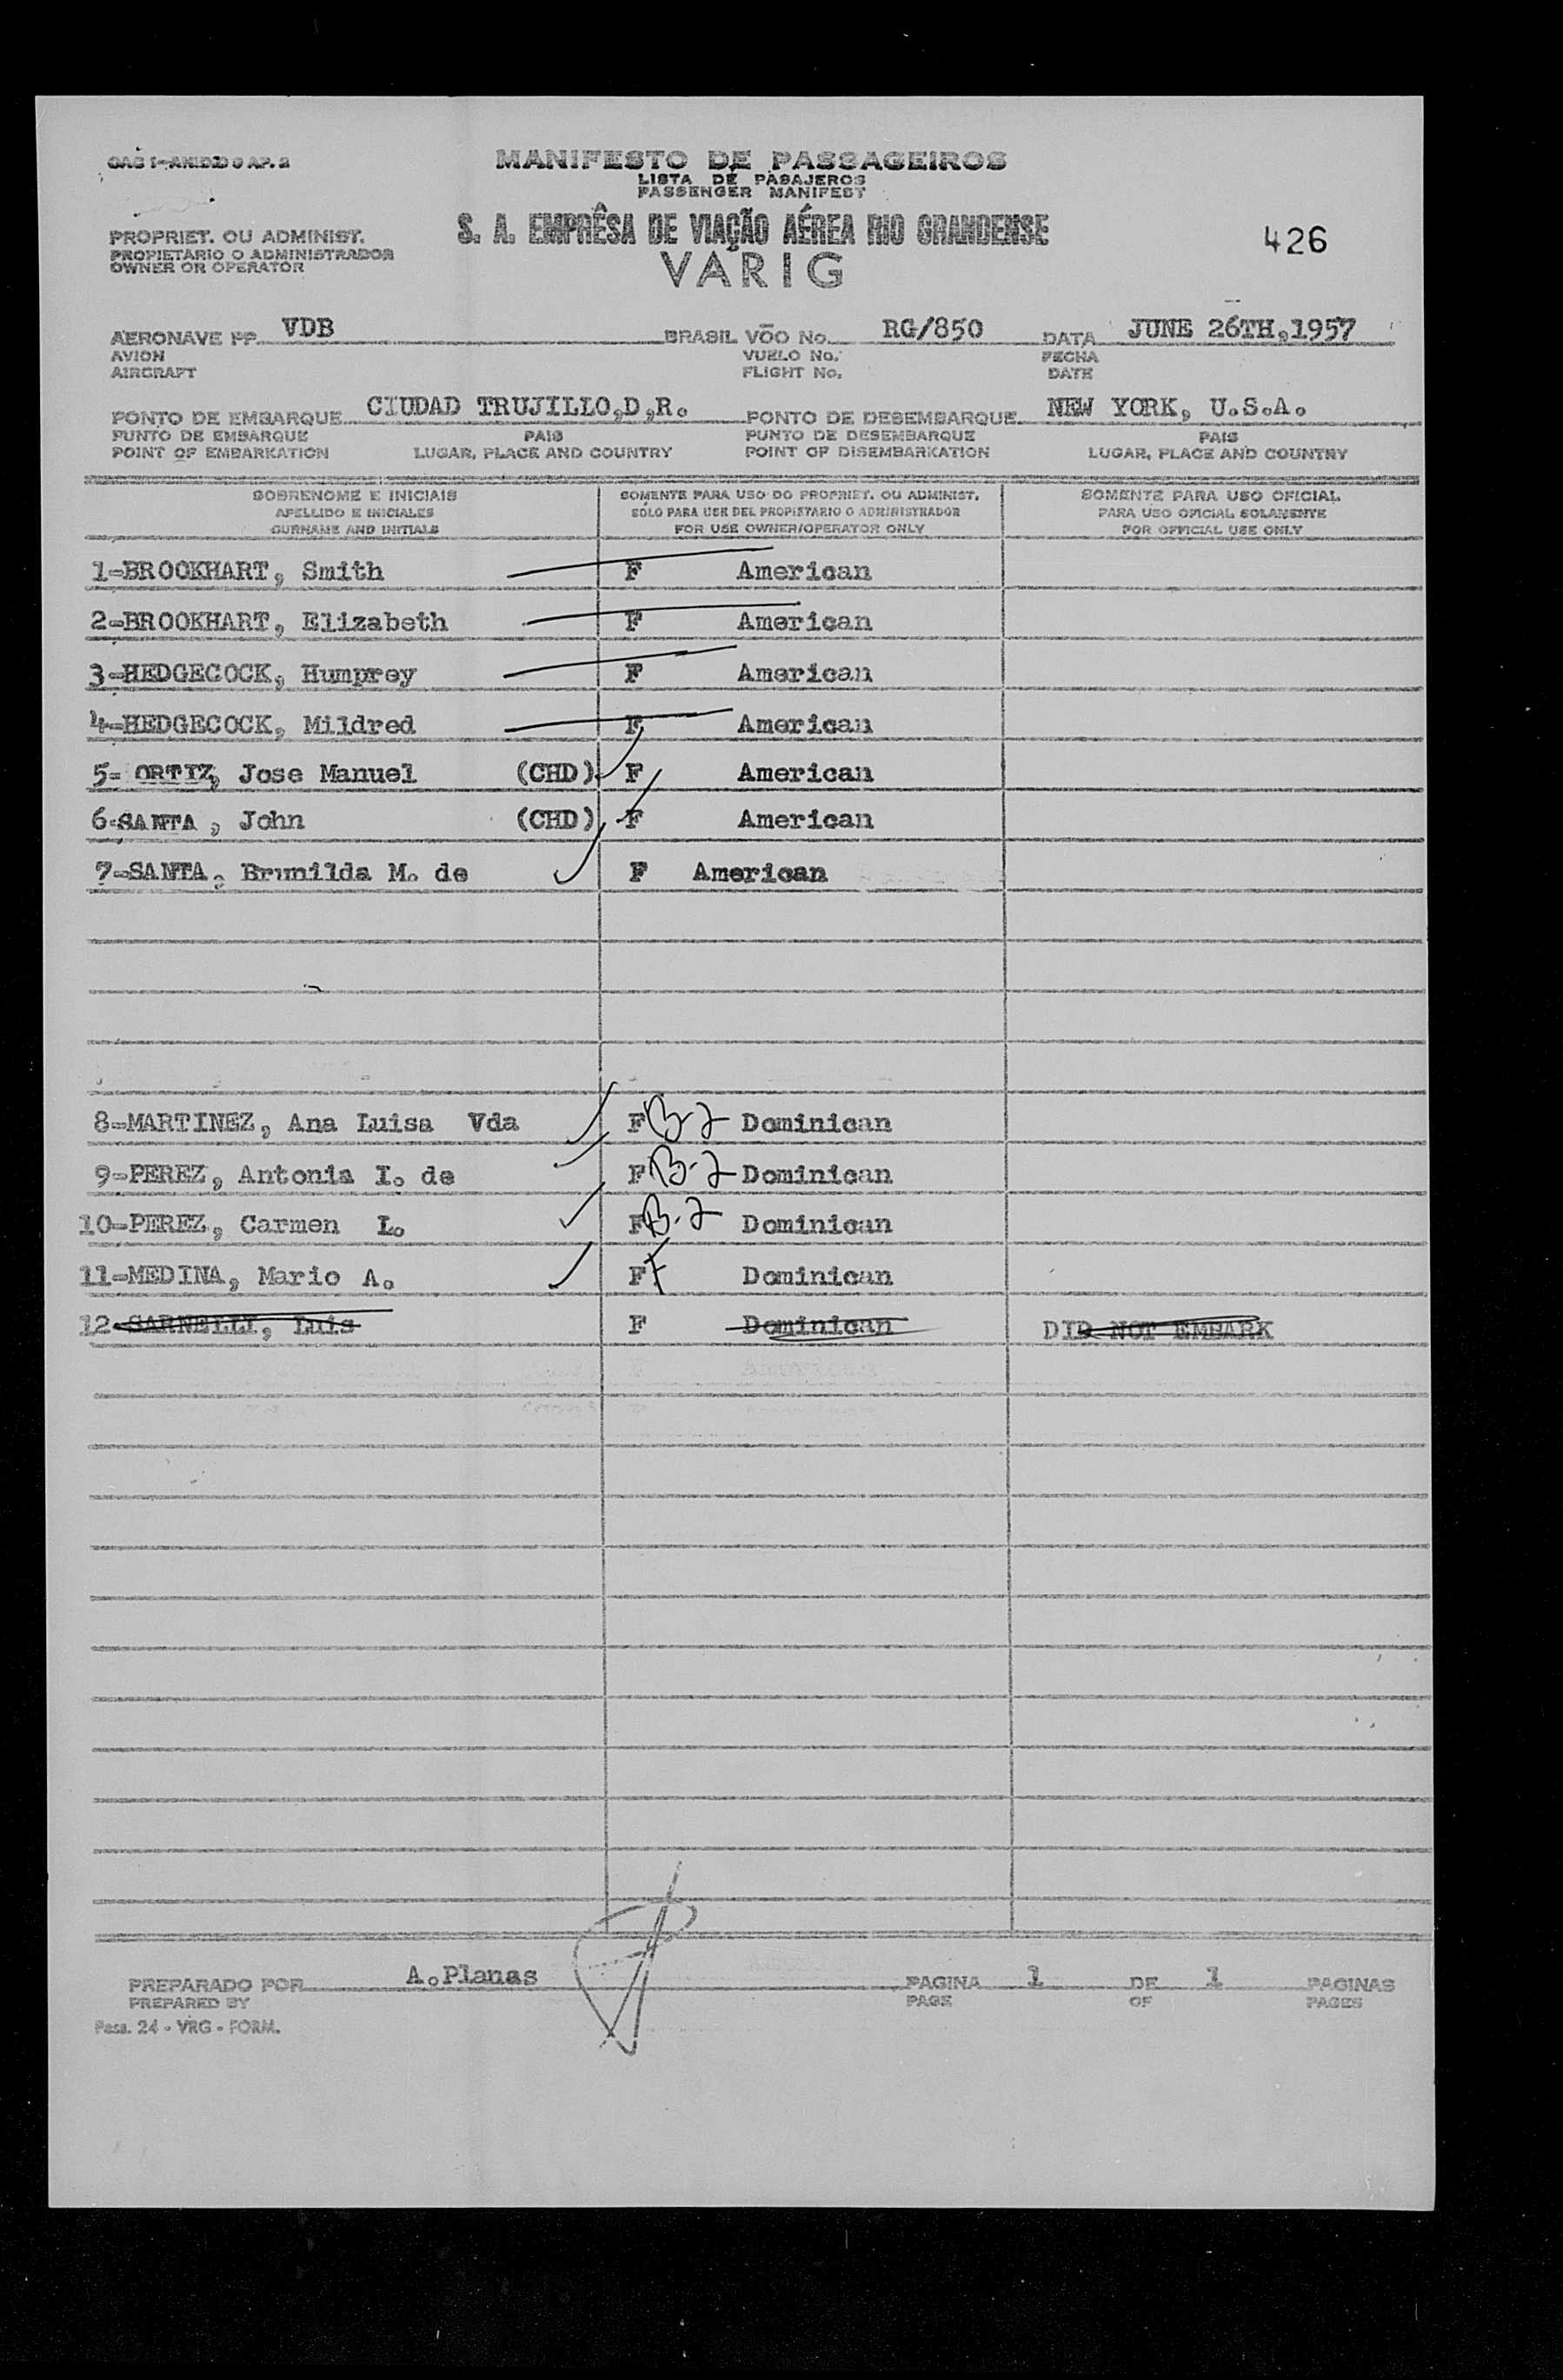 MANIFESTO DE PASSAGEIROS
LISTA DE PASAJEROS
PASSENGER MANIFEST
PROPRIET. OU ADMINIST.
PROPIETARIO O ADMINISTRADOR
OWNER OR OPERATOR
S. A. EMPRÊSA DE VIAÇÃO AÉREA RIO GRANDENSE
VARIG
426
AERONAVE PP VDB BRASIL VÔO No. RG/850 DATA JUNE 26TH,1957
AVION VUELO No. FECHA
AIRCRAFT FLIGHT No. DATE
PONTO DE EMBARQUE CIUDAD TRUJILLO,D,R. PONTO DE DESEMBARQUE NEW YORK, U.S.A.
PUNTO DE EMBARQUE PAIS PUNTO DE DESEMBARQUE PAIS
POINT OF EMBARKATION LUGAR, PLACE AND COUNTRY POINT OF DISEMBARKATION LUGAR, PLACE AND COUNTRY
SOBRENOME E INICIAIS SOMENTE PARA USO DO PROPRIET. OU ADMINIST. SOMENTE PARA USO OFICIAL
APELLIDO E INICIALES SÓLO PARA USE DEL PROPIETARIO O ADMINISTRADOR PARA USO OFICIAL SOLAMENTE
SURNAME AND INITIALS FOR USE OWNER/OPERATOR ONLY FOR OFFICIAL USE ONLY
1-BROOKHART, Smith F American
2-BROOKHART, Elizabeth F American
3-HEDGECOCK, Humprey F American
4-HEDGECOCK, Mildred F American
5- ORTIZ, Jose Manuel (CHD) F American
6-SANTA, John (CHD) F American
7-SANTA, Brunilda M. de F American
8-MARTINEZ, Ana Luisa Vda F B-2 Dominican
9-PEREZ, Antonia I. de F B-2 Dominican
10-PEREZ, Carmen L. F B-2 Dominican
11-MEDINA, Mario A. F F Dominican
12-SARNELLI, Luis F Dominican DID NOT EMBARK
PREPARADO POR A.Planas PAGINA 1 DE 1 PAGINAS
PREPARED BY PAGE OF PAGES
Pasa. 24 - VRG - FORM.